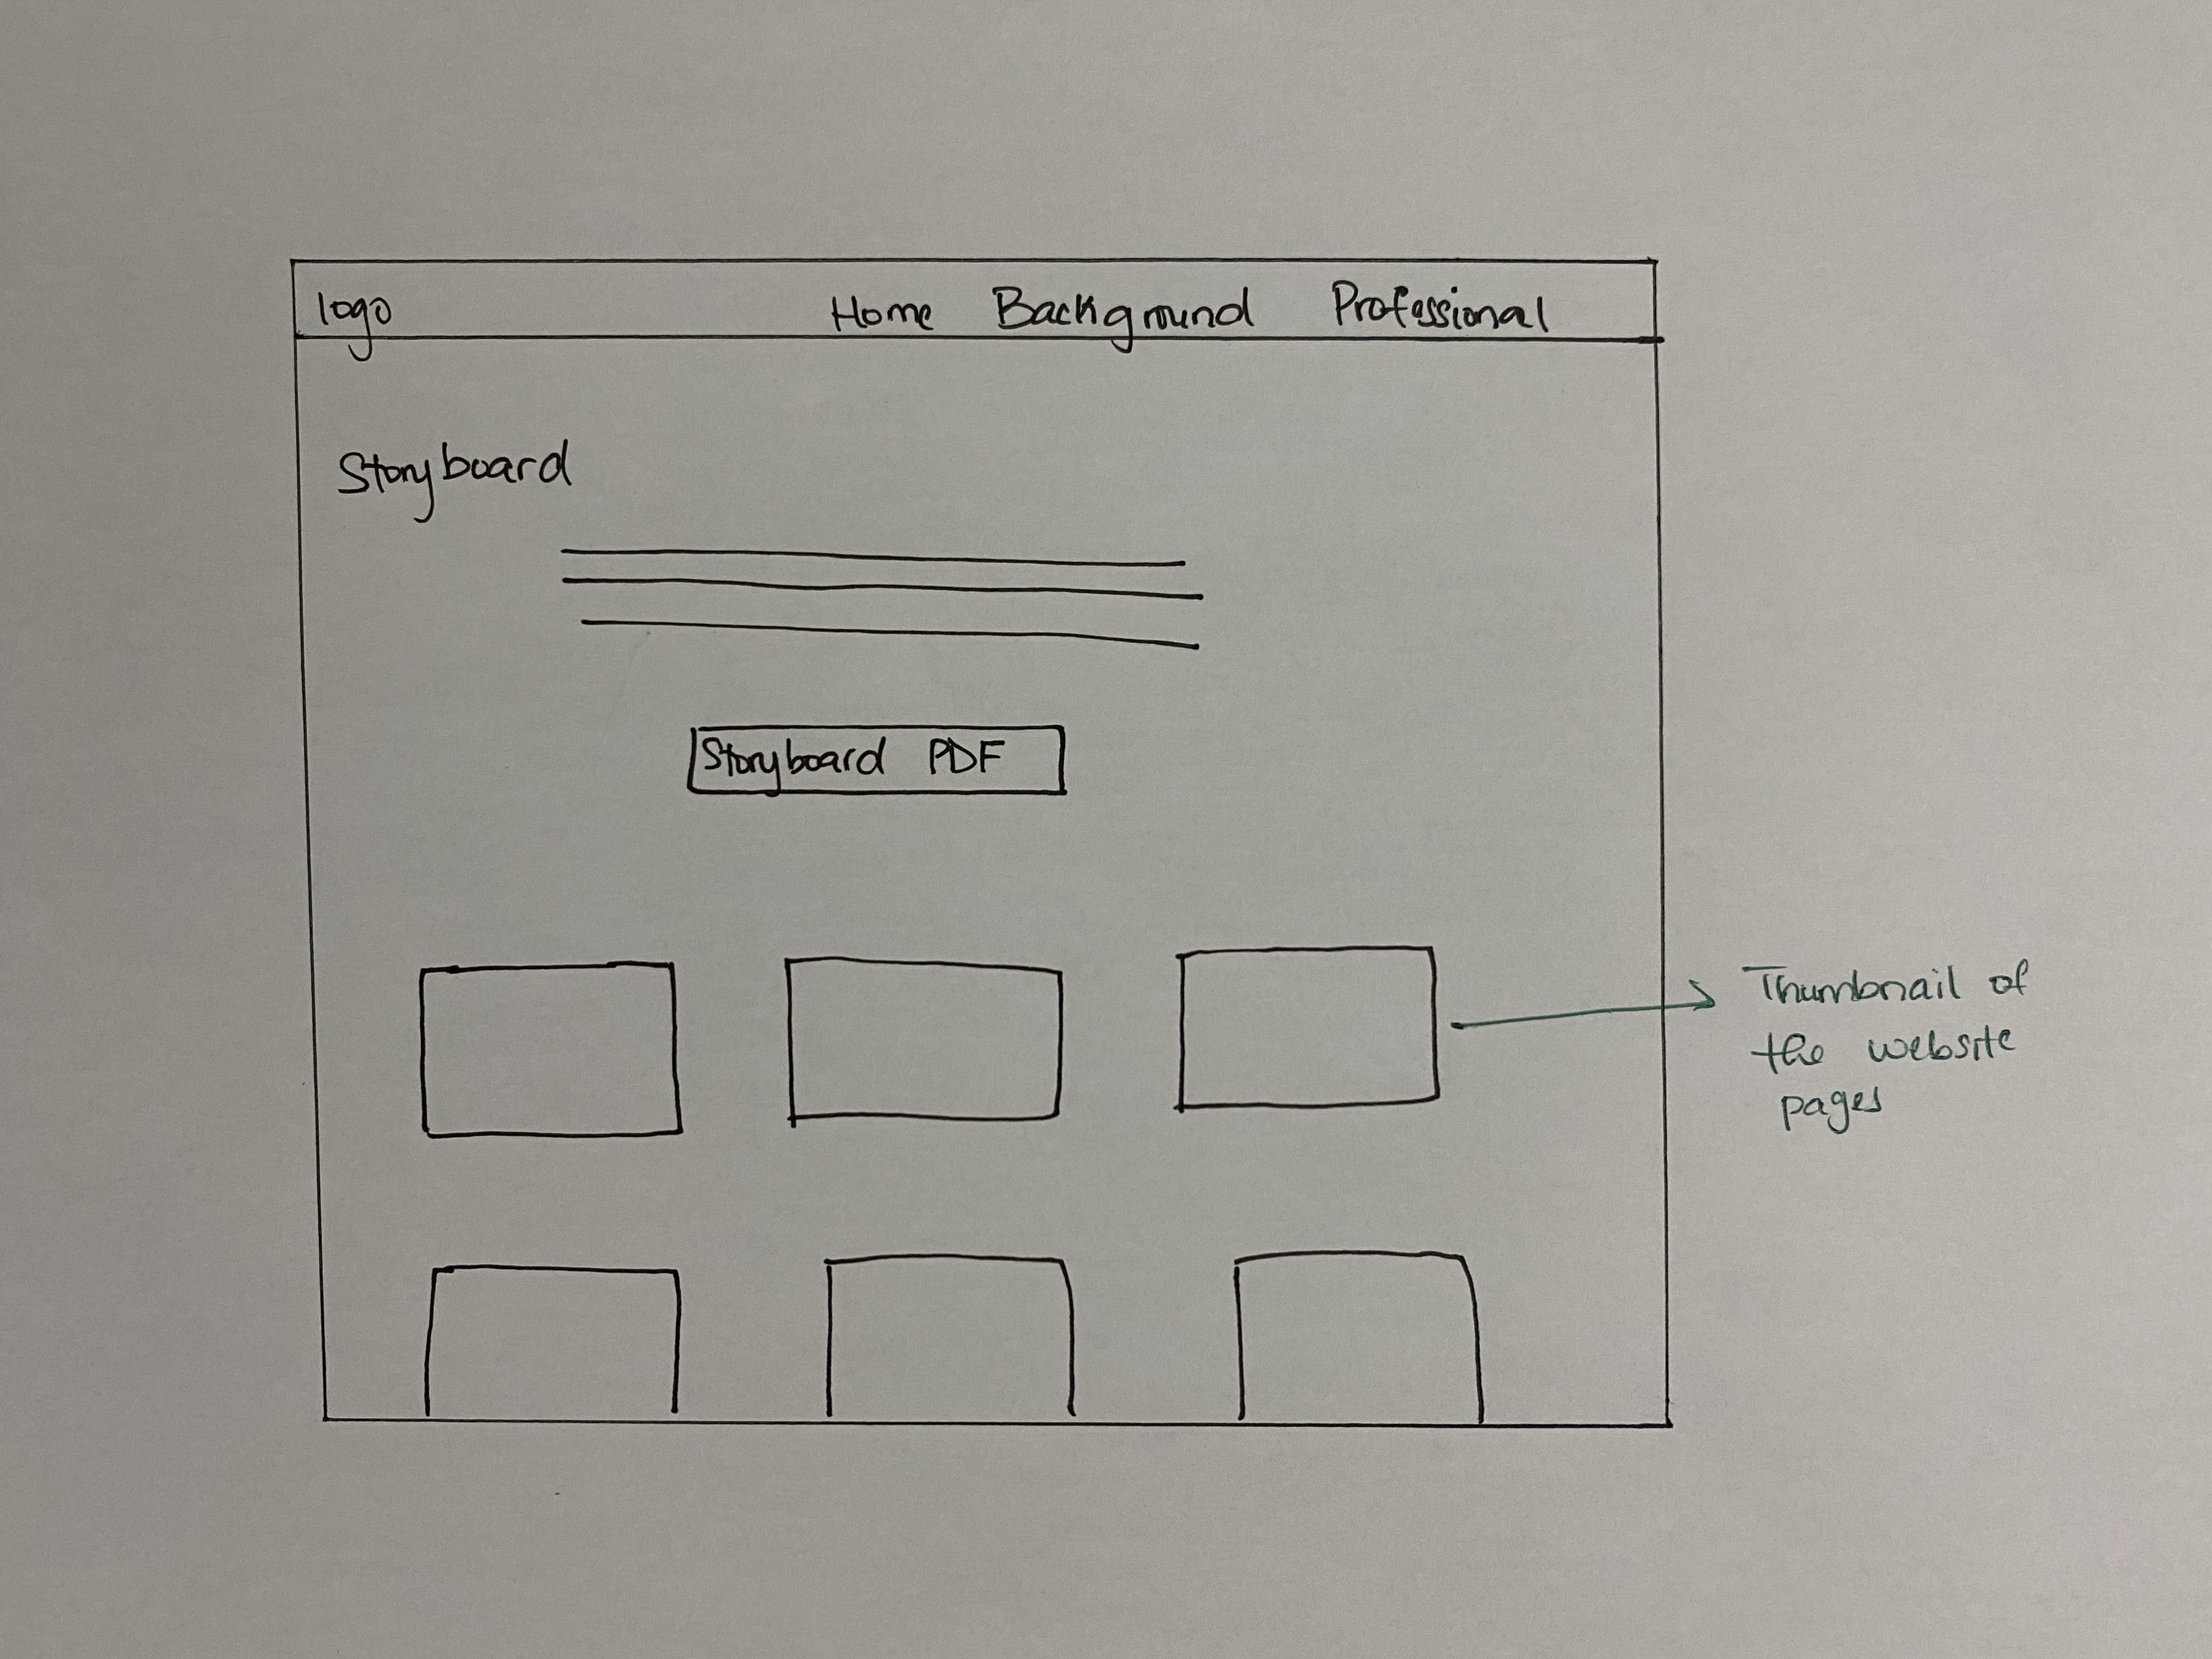 logo Home Background Professional
Storyboard
Storyboard PDF
Thumbnail of
the website
pages